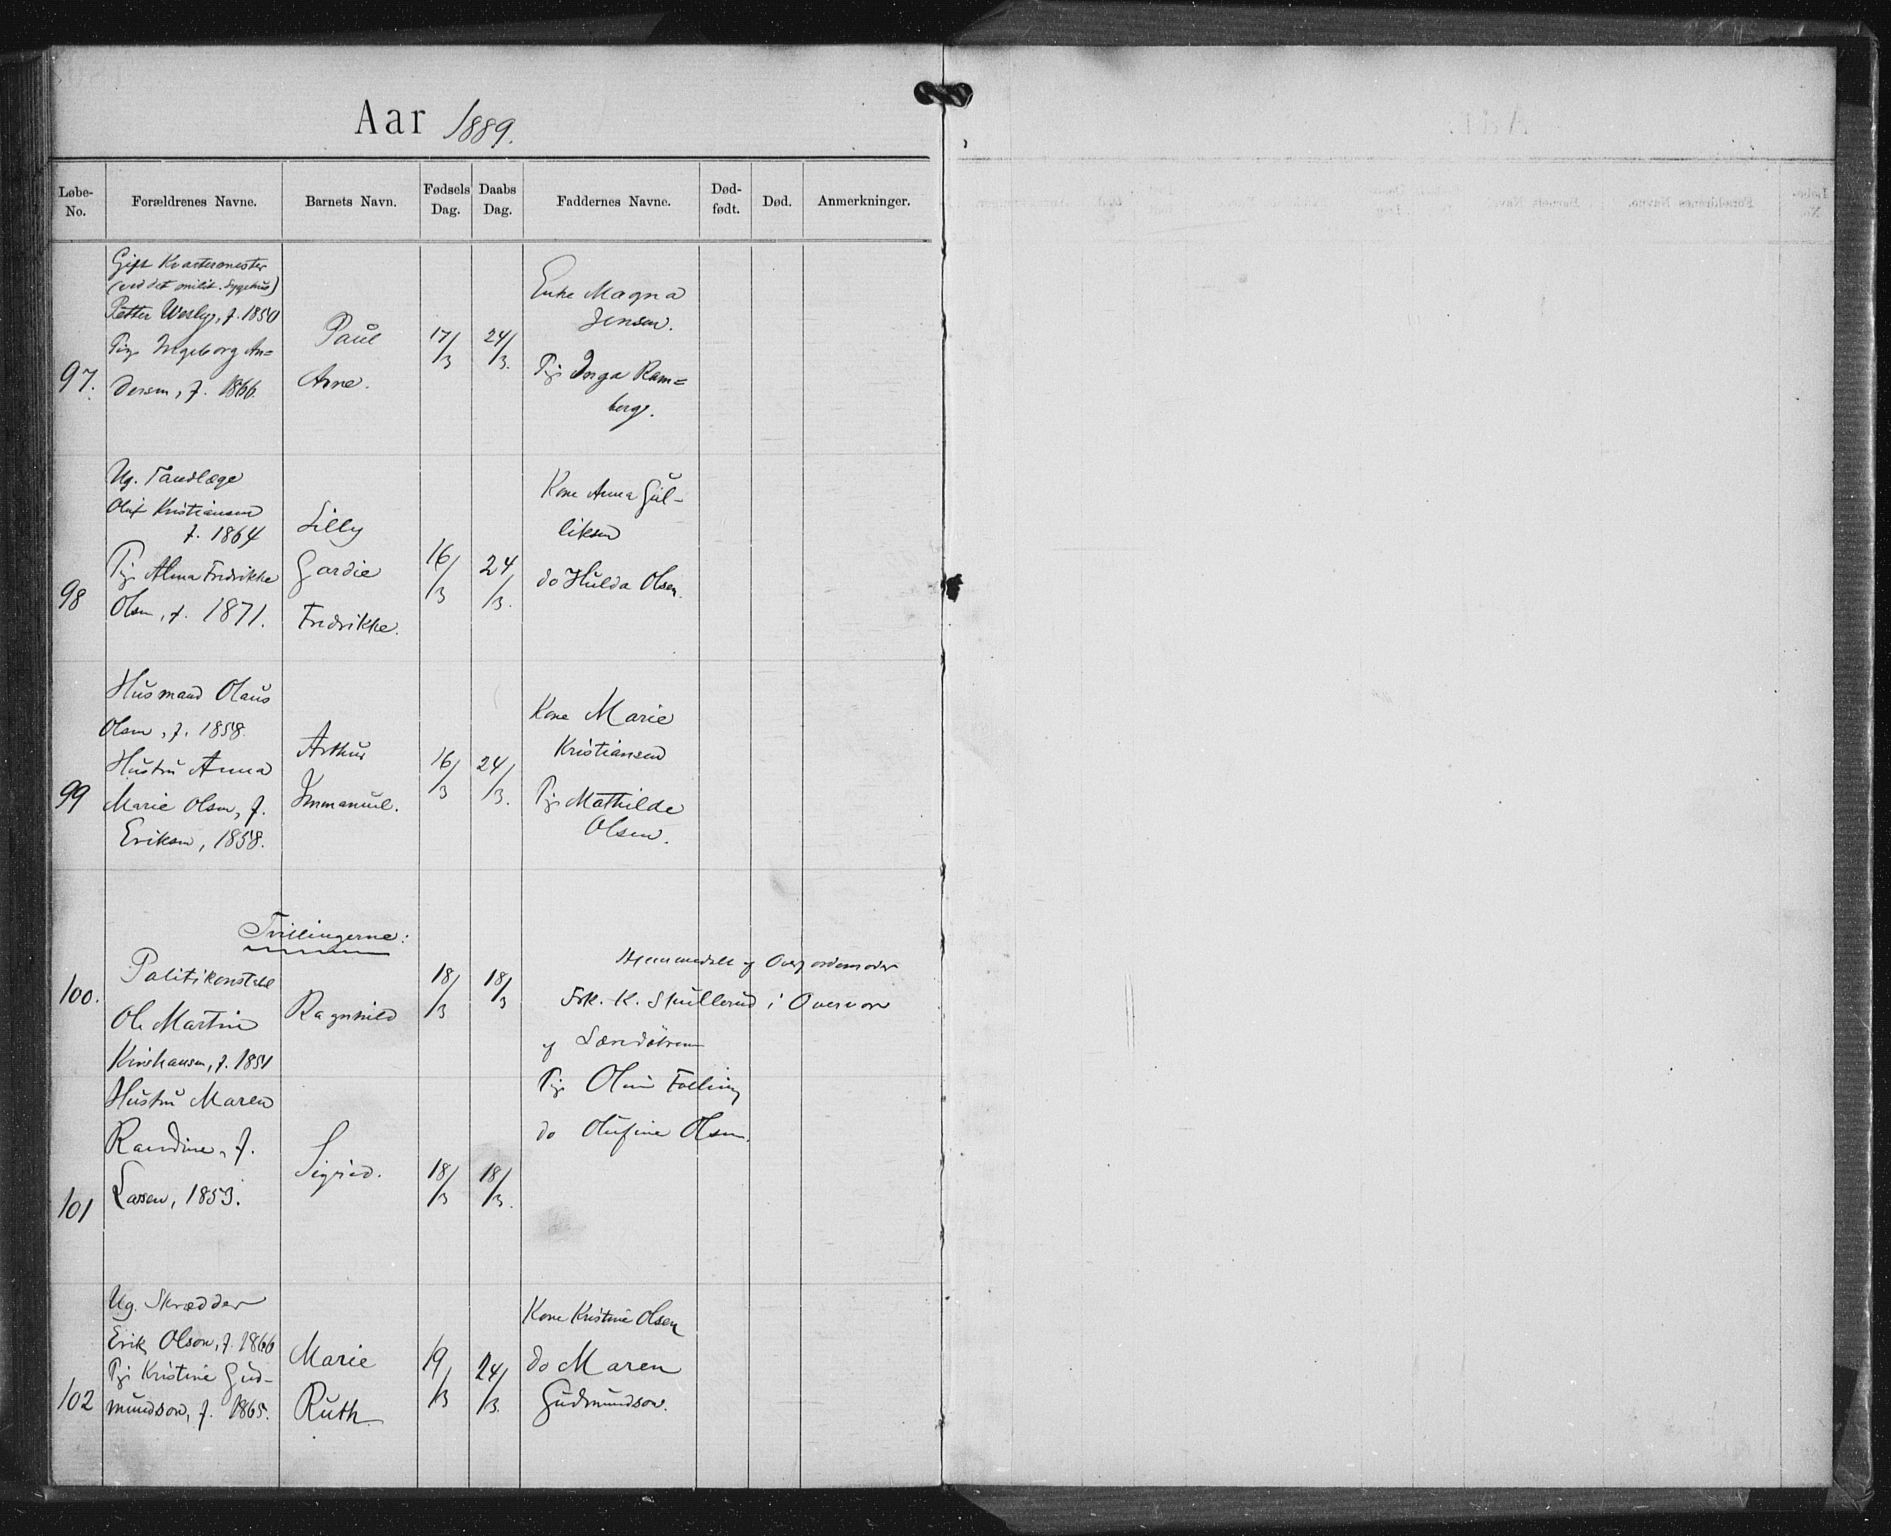 Aar 1889.
Løbe-No. Forældrenes Navne. Barnets Navn. Fødsels Dag. Daabs Dag. Faddernes Navne. Død-født. Død. Anmerkninger.
97.
Gift Kvartermester
(ved det milit. Sygehus)
Petter Wesby, f. 1850
Pige Ingeborg An=
dersen, f. 1866.
Paul
Arne.
17/3
24/3.
Enke Magna
Jensen.
Pige Inga Ram=
berg.
98
Ug. Tandlæge
Oluf Kristiansen
f. 1864
Pige Alma Fredrikke
Olsen, f. 1871.
Lilly
Gardie
Fredrikke.
16/3
24/3.
Kone Anna Gul-
liksen
do Hulda Olsen.
99
Husmand Olaus
Olsen, f. 1858.
Hustru Anna
Marie Olsen, f.
Eriksen, 1858.
Arthur
Immanuel.
16/3
24/3.
Kone Marie
Kristiansen
Pige Mathilde
Olsen.
Tvillingerne:
100.
Politikonstabel
Ole Martin
Kristiansen, f. 1851
Hustru Maren
Randine, f.
Larsen, 1853.
Ragnhild
18/3
18/3
Hjemmedøbt af Overjordemoder
Frk. K. Skullerud i Overvær
af
Pige
do Olufine Olsen.
101
Sigrid.
18/3
18/3.
102
Ug. Skrædder
Erik Olson, f. 1866
Pige Kristine Gud-
mundson, f. 1865.
Marie
Ruth
19/3
24/3.
Kone Kristine Olsen
do Maren
Gudmundson.